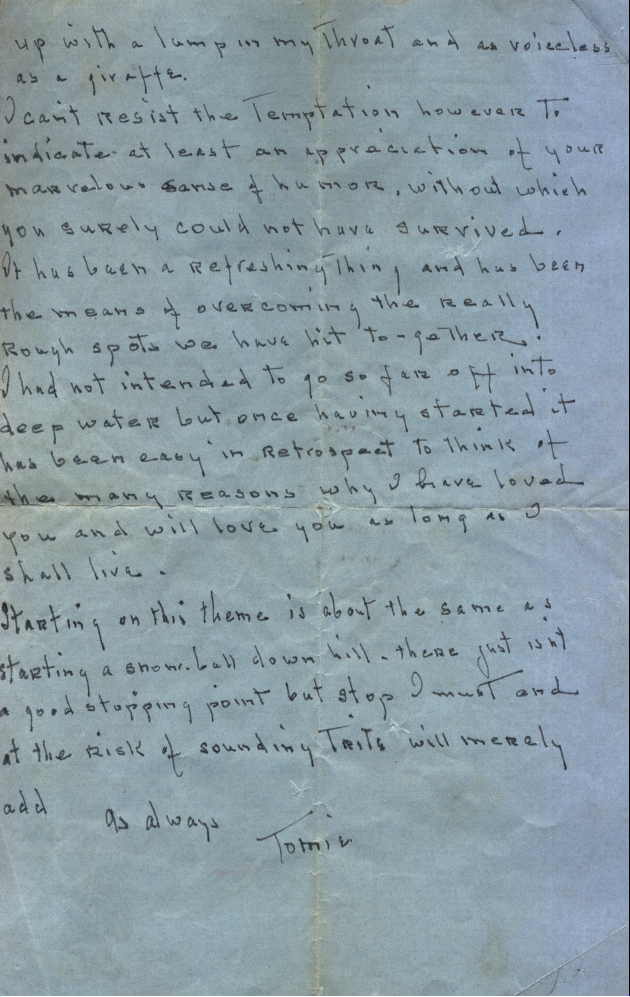 up with a lump in my Throat and as voiceless
as a giraffe.
I can't resist the Temptation however To
indicate at least an appreciation of your
marvelous sense of humor, without which
you surely could not have survived.
It has been a refreshing Thing and has been
the means of overcoming the really
Rough spots we have hit to-gether.
I had not intended to go so far off into
deep water but once having started it
has been easy in Retrospect to Think of
the many Reasons why I have loved
you and will love you as long as I
shall live.
Starting on this theme is about the same as
starting a snow-ball down hill - there just isn't
a good stopping point but stop I must and
at the risk of sounding Trite will merely
add
as always
Tomie